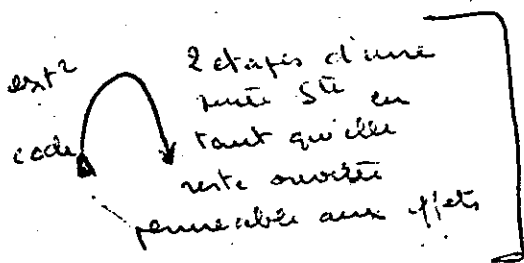 ext²
code
2 étapes d'une
Sté en
tant qu'elle
reste ouverte
perméable aux effets